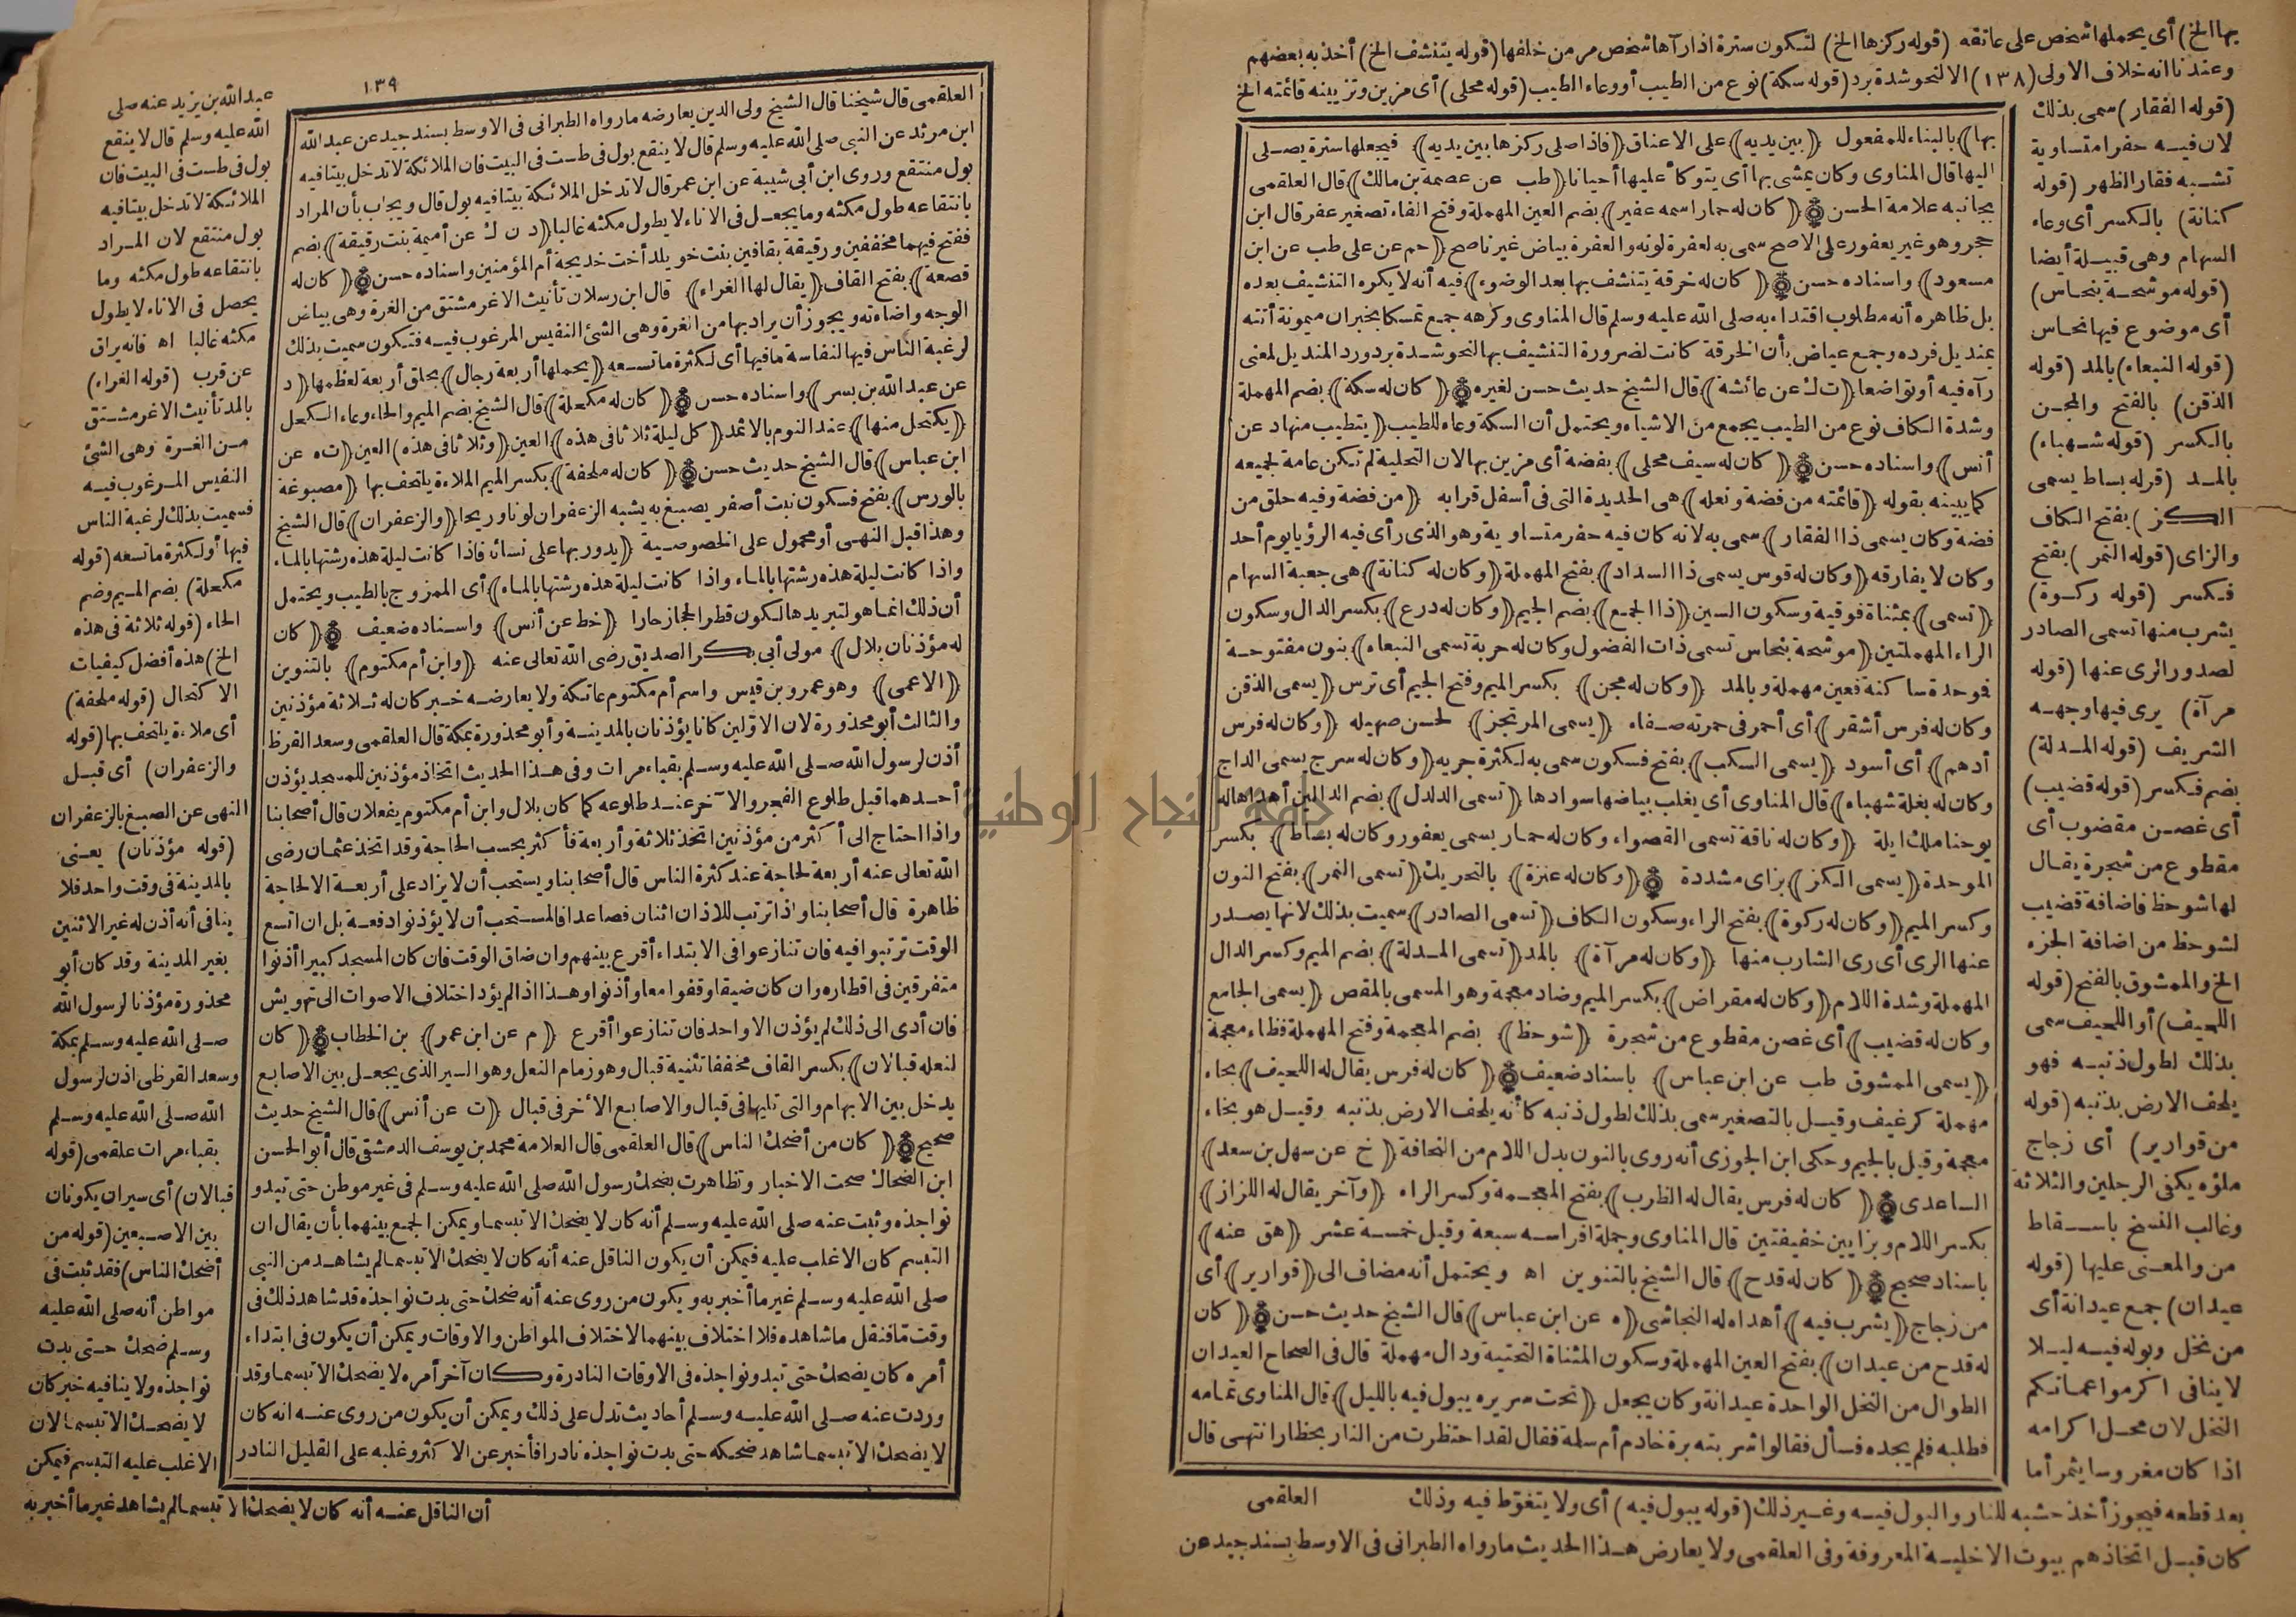 بها الخ) أى يحملها شخص على عاتقه (قوله ركزها الخ) لتكون سترة اذا رآها شخص مر من خلفها (قوله يتنشف الخ) أخذ به بعضهم
وعندنا انه خلاف الاولى (١٣٨) الا لنحو شدة برد (قوله سكة) نوع من الطيب أو وعاء الطيب (قوله محلى) أى مزين وتزيينه قائمته الخ
(قوله الفقار) سمى بذلك
لان فيه حفرا متساوية
تشبه فقار الظهر (قوله
كنانة) بالكسر أى وعاء
السهام وهى قبيلة أيضا
(قوله موشحة بنحاس)
أى موضوع فيها نحاس
(قوله النبعاء) بالمد (قوله
الذقن) بالفتح والمجن
بالكسر (قوله شهباء)
بالمد (قوله بساط يسمى
الكز) بفتح الكاف
والزاى (قوله النمر) بفتح
فكسر (قوله ركوة)
يشرب منها تسمى الصادر
لصدور الرى عنها (قوله
مرآة) يرى فيها وجهه
الشريف (قوله المدلة)
بضم فكسر (قوله قضيب)
أى غصن مقضوب أى
مقطوع من شجرة يقال
لها شوحظ فاضافة قضيب
لشوحظ من اضافة الجزء
الخ والممشوق بالفتح (قوله
اللحيف) أو اللخيف سمى
بذلك لطول ذنبه فهو
يلحف الارض بذنبه (قوله
من قوارير) أى زجاج
ملؤه يكفى الرجلين والثلاثة
وغالب النسخ باسقاط
من والمعنى عليها (قوله
عيدان) جمع عيدانة أى
من نخل وبوله فيه ليلا
لا ينافى اكرموا عماتكم
النخل لان محل اكرامه
اذا كان مغروسا يثمر أما
بها﴾ بالبناء للمفعول ﴿بين يديه﴾ على الاعناق ﴿فاذا صلى ركزها بين يديه﴾ فيجعلها سترة يصلى
اليها قال المناوى وكان يمشى بها أى يتوكأ عليها أحيانا ﴿طب عن عصمة بن مالك﴾ قال العلقمى
بجانبه علامة الحسن ﴿كان له حمار اسمه عفير﴾ بضم العين المهملة وفتح الفاء تصغير عفر قال ابن
حجر وهو غير يعفور على الاصح سمى به لعفرة لونه والعفرة بياض غير ناصح ﴿حم عن على طب عن ابن
مسعود﴾ واسناده حسن ﴿كان له خرقة يتنشف بها بعد الوضوء﴾ فيه أنه لا يكره التنشيف بعده
بل ظاهره أنه مطلوب اقتداء به صلى الله عليه وسلم قال المناوى وكرهه جمع تمسكا بخبر ان ميمونة أتته
بمنديل فرده وجمع عياض بأن الخرقة كانت لضرورة التنشيف بها لنحو شدة برد ورد المنديل لمعنى
رآه فيه أو تواضعا ﴿ت ك عن عائشة﴾ قال الشيخ حديث حسن لغيره ﴿كان له سكة﴾ بضم المهملة
وشدة الكاف نوع من الطيب يجمع من الاشياء ويحتمل أن السكة وعاء للطيب ﴿يتطيب منها د عن
أنس﴾ واسناده حسن ﴿كان له سيف محلى﴾ بفضة أى مزين بها لان التحلية لم تكن عامة لجميعه
كما يبينه بقوله ﴿قائمته من فضة ونعله﴾ هى الحديدة التى فى أسفل قرابه ﴿من فضة وفيه حلق من
فضة وكان يسمى ذا الفقار﴾ سمى به لانه كان فيه حفر متساوية وهو الذى رأى فيه الرؤيا يوم أحد
وكان لا يفارقه ﴿وكان له قوس يسمى ذا السداد﴾ بفتح المهملة ﴿وكان له كنانة﴾ هى جعبة السهام
﴿تسمى﴾ بمثناة فوقية وسكون السين ﴿ذا الجمع﴾ بضم الجيم ﴿وكان له درع﴾ بكسر الدال وسكون
الراء المهملتين ﴿موشحة بنحاس تسمى ذات الفضول وكان له حربة تسمى النبعاء﴾ بنون مفتوحة
فوحدة ساكنة فعين مهملة وبالمد ﴿وكان له مجن﴾ بكسر الميم وفتح الجيم أى ترس ﴿يسمى الذقن
وكان له فرس أشقر﴾ أى أحمر فى حمرته صفاء ﴿يسمى المرتجز﴾ لحسن صهيله ﴿وكان له فرس
أدهم﴾ أى أسود ﴿يسمى السكب﴾ بفتح فسكون سمى به لكثرة جريه ﴿وكان له سرج يسمى الداج
وكان له بغلة شهباء﴾ قال المناوى أى يغلب بياضها سوادها ﴿تسمى الدلدل﴾ بضم الدالين أهداها له
يوحنا ملك ايلة ﴿وكان له ناقة تسمى القصواء وكان له حمار يسمى يعفور وكان له بساط﴾ بكسر
الموحدة ﴿يسمى الكز﴾ بزاى مشددة ﴿وكان له عنزة﴾ بالتحريك ﴿تسمى النمر﴾ بفتح النون
وكسر الميم ﴿وكان له ركوة﴾ بفتح الراء وسكون الكاف ﴿تسمى الصادر﴾ سميت بذلك لانها يصدر
عنها الرى أى رى الشارب منها ﴿وكان له مرآة﴾ بالمد ﴿تسمى المدلة﴾ بضم الميم وكسر الدال
المهملة وشدة اللام ﴿وكان له مقراض﴾ بكسر الميم وضاد معجمة وهو المسمى بالمقص ﴿يسمى الجامع
وكان له قضيب﴾ أى غصن مقطوع من شجرة ﴿شوحظ﴾ بضم المعجمة وفتح المهملة فظاء معجمة
﴿يسمى الممشوق طب عن ابن عباس﴾ باسناد ضعيف ﴿كان له فرس يقال له اللحيف﴾ بحاء
مهملة كرغيف وقيل بالتصغير سمى بذلك لطول ذنبه كأنه يلحف الارض بذنبه وقيل هو بخاء
معجمة وقيل بالجيم وحكى ابن الجوزى أنه روى بالنون بدل اللام من النحافة ﴿خ عن سهل بن سعد﴾
الساعدى ﴿كان له فرس يقال له الظرب﴾ بفتح المعجمة وكسر الراء ﴿وآخر يقال له اللزاز﴾
بكسر اللام وبزايين خفيفتين قال المناوى وجملة افراسه سبعة وقيل خمسة عشر ﴿هق عنه﴾
باسناد صحيح ﴿كان له قدح﴾ قال الشيخ بالتنوين اه ويحتمل أنه مضاف الى ﴿قوارير﴾ أى
من زجاج ﴿يشرب فيه﴾ أهداه له النجاشى ﴿ه عن ابن عباس﴾ قال الشيخ حديث حسن ﴿كان
له قدح من عيدان﴾ بفتح العين المهملة وسكون المثناة التحتية ودال مهملة قال فى الصحاح العيدان
الطوال من النخل الواحدة عيدانة وكان يجعل ﴿تحت سريره يبول فيه بالليل﴾ قال المناوى تمامه
فطلبه فلم يجده فسأل فقالوا شربته برة خادم أم سلمة فقال لقد احتظرت من النار بحظار انتهى قال
العلقمى
بعد قطعه فيجوز أخذ خشبه للنار والبول فيه وغير ذلك (قوله يبول فيه) أى ولا يتغوط فيه وذلك
كان قبل اتخاذهم بيوت الاخلية المعروفة وفى العلقمى ولا يعارض هذا الحديث ما رواه الطبرانى فى الاوسط بسند جيد عن
١٣٩
عبد الله بن يزيد عنه صلى
الله عليه وسلم قال لا ينقع
بول فى طست فى البيت فان
الملائكة لا تدخل بيتا فيه
بول منتقع لان المراد
بانتقاعه طول مكثه وما
يحصل فى الاناء لا يطول
مكثه غالبا اه فانه يراق
عن قرب (قوله الغراء)
بالمد تأنيث الاغر مشتق
من الغرة وهى الشئ
النفيس المرغوب فيه
فسميت بذلك لرغبة الناس
فيها أو لكثرة ما تسعه (قوله
مكحلة) بضم الميم وضم
الحاء (قوله ثلاثة فى هذه
الخ) هذه أفضل كيفيات
الاكتحال (قوله ملحفة)
أى ملاءة يلتحف بها (قوله
والزعفران) أى قبل
النهى عن الصبغ بالزعفران
(قوله مؤذنان) يعنى
بالمدينة فى وقت واحد فلا
ينافى أنه أذن له غير الاثنين
بغير المدينة وقد كان أبو
محذورة مؤذنا لرسول الله
صلى الله عليه وسلم بمكة
وسعد القرظى اذن لرسول
الله صلى الله عليه وسلم
بقباء مرات علقمى (قوله
قبالان) أى سيران يكونان
بين الاصبعين (قوله من
أضحك الناس) فقد ثبت فى
مواطن أنه صلى الله عليه
وسلم ضحك حتى بدت
نواجذه ولا ينافيه خبر كان
لا يضحك الا تبسما لان
الاغلب عليه التبسم فيمكن
العلقمى قال شيخنا قال الشيخ ولى الدين يعارضه ما رواه الطبرانى فى الاوسط بسند جيد عن عبد الله
ابن مرثد عن النبى صلى الله عليه وسلم قال لا ينقع بول فى طست فى البيت فان الملائكة لا تدخل بيتا فيه
بول منتقع وروى ابن أبى شيبة عن ابن عمر قال لا تدخل الملائكة بيتا فيه بول قال ويجاب بأن المراد
بانتقاعه طول مكثه وما يجعل فى الاناء لا يطول مكثه غالبا ﴿د ن ك عن أميمة بنت رقيقة﴾ بضم
ففتح فيهما مخففين ورقيقة بقافين بنت خويلد أخت خديجة أم المؤمنين واسناده حسن ﴿كان له
قصعة﴾ بفتح القاف ﴿يقال لها الغراء﴾ قال ابن رسلان تأنيث الاغر مشتق من الغرة وهى بياض
الوجه واضاءته ويجوز أن يراد بها من الغرة وهى الشئ النفيس المرغوب فيه فتكون سميت بذلك
لرغبة الناس فيها لنفاسة ما فيها أى لكثرة ما تسعه ﴿يحملها أربعة رجال﴾ بحلق أربعة لعظمها ﴿د
عن عبد الله بن بسر﴾ واسناده حسن ﴿كان له مكحلة﴾ قال الشيخ بضم الميم والحاء وعاء الكحل
﴿يكتحل منها﴾ عند النوم بالاثمد ﴿كل ليلة ثلاثا فى هذه﴾ العين ﴿وثلاثا فى هذه﴾ العين ﴿ت ه عن
ابن عباس﴾ قال الشيخ حديث حسن ﴿كان له ملحفة﴾ بكسر الميم الملاءة يلتحف بها ﴿مصبوغة
بالورس﴾ بفتح فسكون نبت أصفر يصبغ به يشبه الزعفران لونا وريحا ﴿والزعفران﴾ قال الشيخ
وهذا قبل النهى أو محمول على الخصوصية ﴿يدور بها على نسائه فاذا كانت ليلة هذه رشتها بالماء
واذا كانت ليلة هذه رشتها بالماء واذا كانت ليلة هذه رشتها بالماء﴾ أى الممزوج بالطيب ويحتمل
أن ذلك انما هو لتبريدها لكون قطر الحجاز حارا ﴿خط عن أنس﴾ واسناده ضعيف ﴿كان
له مؤذنان بلال﴾ مولى أبى بكر الصديق رضى الله تعالى عنه ﴿وابن أم مكتوم﴾ بالتنوين
﴿الاعمى﴾ وهو عمرو بن قيس واسم أم مكتوم عاتكة ولا يعارضه خبر كان له ثلاثة مؤذنين
والثالث أبو محذورة لان الاولين كانا يؤذنان بالمدينة وأبو محذورة بمكة قال العلقمى وسعد القرظ
أذن لرسول الله صلى الله عليه وسلم بقباء مرات وفى هذا الحديث اتخاذ مؤذنين للمسجد يؤذن
أحدهما قبل طلوع الفجر والآخر عند طلوعه كما كان بلال وابن أم مكتوم يفعلان قال أصحابنا
واذا احتاج الى أكثر من مؤذنين اتخذ ثلاثة وأربعة فأكثر بحسب الحاجة وقد اتخذ عثمان رضى
الله تعالى عنه أربعة لحاجة عند كثرة الناس قال أصحابنا ويستحب أن لا يزاد على أربعة الا لحاجة
ظاهرة قال أصحابنا واذا ترتب للاذان اثنان فصاعدا فالمستحب أن لا يؤذنوا دفعة بل ان اتسع
الوقت ترتبوا فيه فان تنازعوا فى الابتداء أقرع بينهم وان ضاق الوقت فان كان المسجد كبيرا أذنوا
متفرقين فى اقطاره وان كان ضيقا وقفوا معا وأذنوا وهذا اذا لم يؤد اختلاف الاصوات الى تهويش
فان أدى الى ذلك لم يؤذن الا واحد فان تنازعوا أقرع ﴿م عن ابن عمر﴾ بن الخطاب ﴿كان
لنعله قبالان﴾ بكسر القاف مخففا تثنية قبال وهو زمام النعل وهو السير الذى يجعل بين الاصابع
يدخل بين الابهام والتى تليها فى قبال والاصابع الأخر فى قبال ﴿ت عن أنس﴾ قال الشيخ حديث
صحيح ﴿كان من أضحك الناس﴾ قال العلقمى قال العلامة محمد بن يوسف الدمشقى قال أبو الحسن
ابن الضحاك صحت الاخبار وتظاهرت بضحك رسول الله صلى الله عليه وسلم فى غير موطن حتى تبدو
نواجذه وثبت عنه صلى الله عليه وسلم أنه كان لا يضحك الا تبسما ويمكن الجمع بينهما بأن يقال ان
التبسم كان الاغلب عليه فيمكن أن يكون الناقل عنه أنه كان لا يضحك الا تبسما لم يشاهد من النبى
صلى الله عليه وسلم غير ما أخبر به ويكون من روى عنه أنه ضحك حتى بدت نواجذه قد شاهد ذلك فى
وقت مّا فنقل ما شاهده فلا اختلاف بينهما لاختلاف المواطن والاوقات ويمكن أن يكون فى ابتداء
أمره كان يضحك حتى تبدو نواجذه فى الاوقات النادرة وكان آخر أمره لا يضحك الا تبسما وقد
وردت عنه صلى الله عليه وسلم أحاديث تدل على ذلك ويمكن أن يكون من روى عنه انه كان
لا يضحك الا تبسما شاهد ضحكه حتى بدت نواجذه نادرا فأخبر عن الاكثر وغلبه على القليل النادر
أن الناقل عنه أنه كان لا يضحك الا تبسما لم يشاهد غير ما أخبر به
جامعة النجاح الوطنية